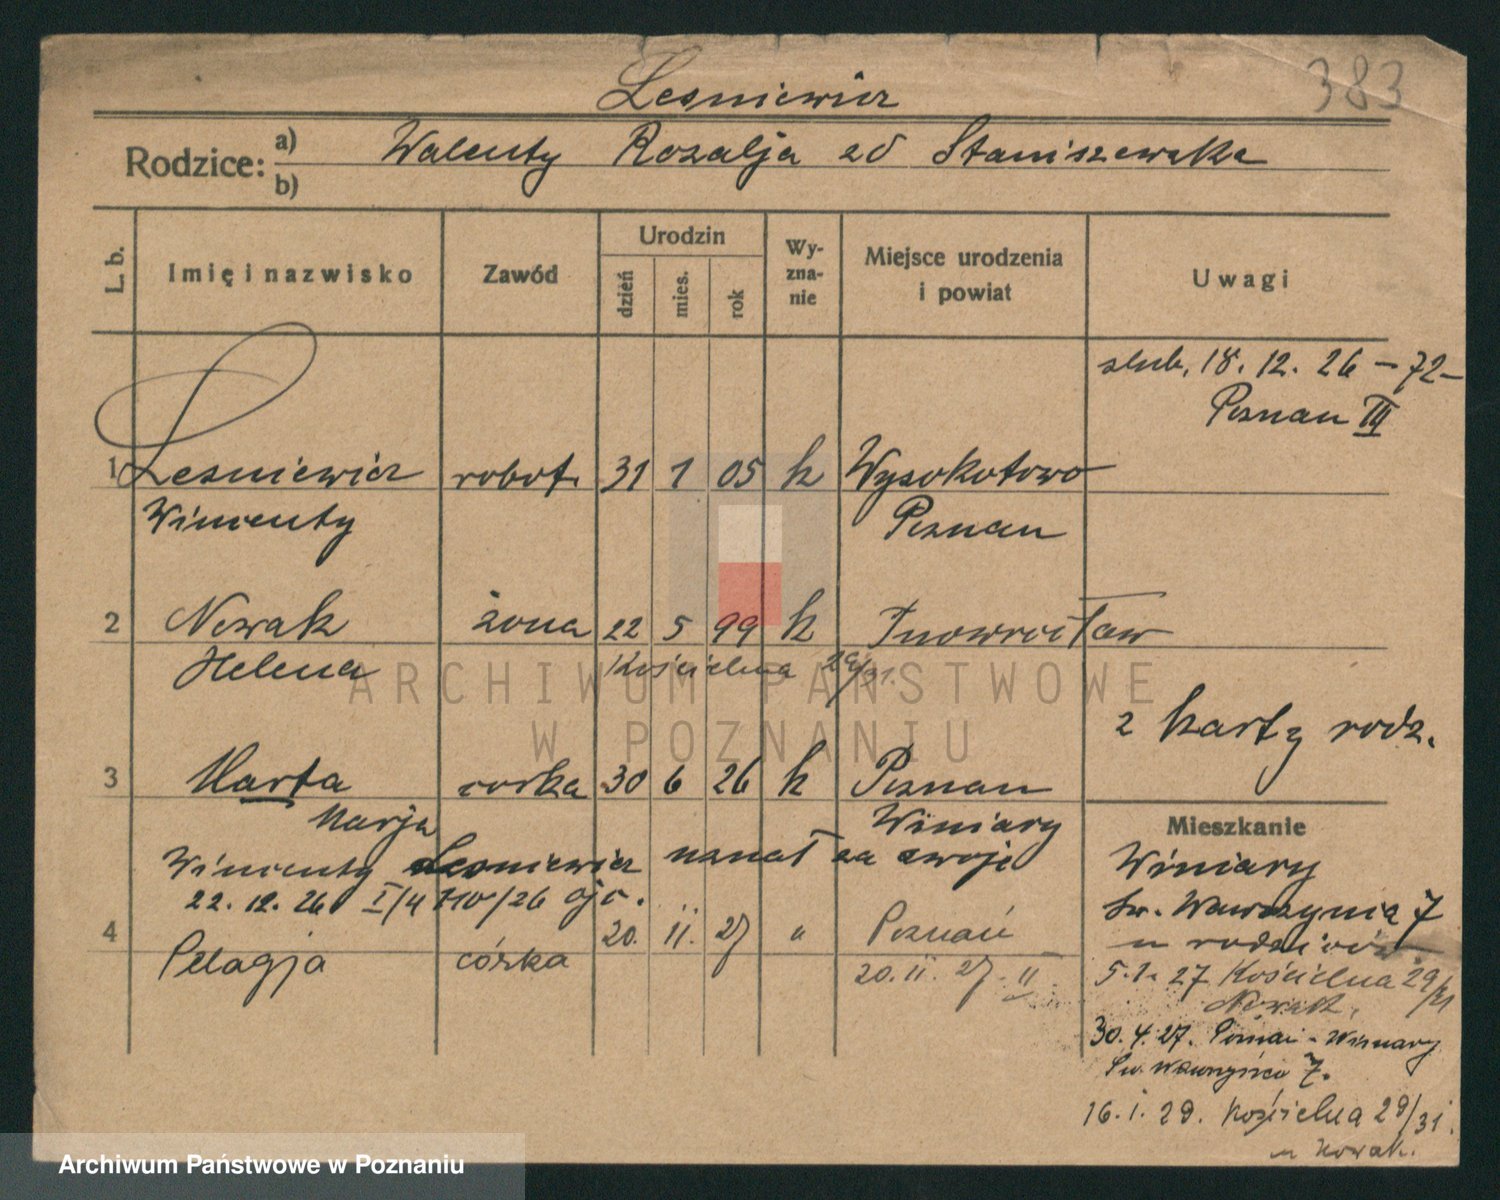 383
Lesniewicz
Rodzice: a) Walenty Rozalja zd Staniszewska
b)
L. b. Imię i nazwisko Zawód Urodzin dzień mies. rok Wy-zna-nie Miejsce urodzenia i powiat Uwagi
slub, 18. 12. 26 – 72 –
Poznan III
1 Lesniewicz robot. 31 1 05 k Wysokotowo
Wincenty Poznan
2 Nowak żona 22 5 99 k Inowrocław
Helena Kościelna 29/31.
2 karty rodz.
3 Marta corka 30 6 26 k Poznan
Marja Winiary
Mieszkanie
Wincenty Lesniewicz uznał za swoje
22. 12. 26 I/4 110/26 ojc.
Winiary
Św. Wawrzynca 7
u rodziców
4 20. II. 27 " Poznań
Pelagja córka 20. II. 27. II
5. 1. 27 Kościelna 29/31
Nowak.
30. 4. 27. Poznań - Winiary
Św. Wawrzyńca 7.
16. 1. 29. Kościelna 29/31.
u Nowak.
ARCHIWUM PAŃSTWOWE
W POZNANIU
Archiwum Państwowe w Poznaniu